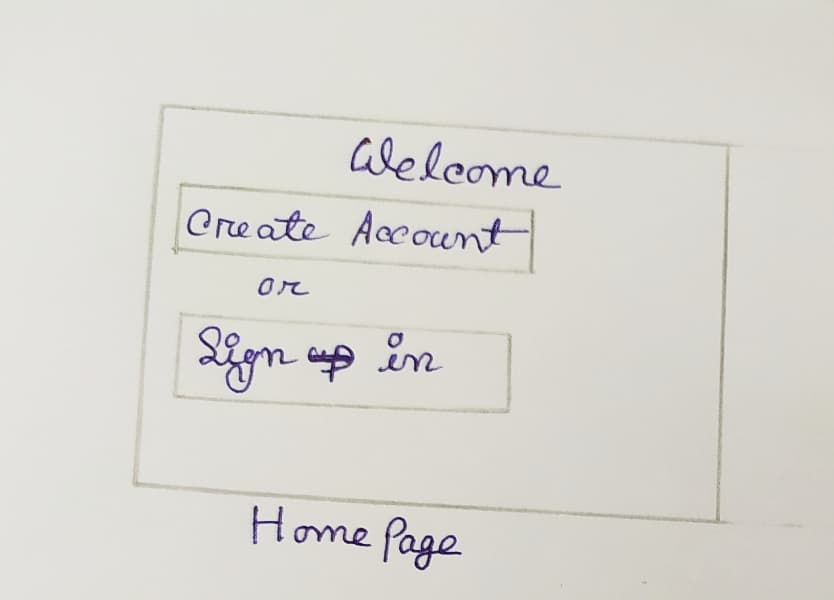 Welcome
Create Account
or
Sign in
Home Page